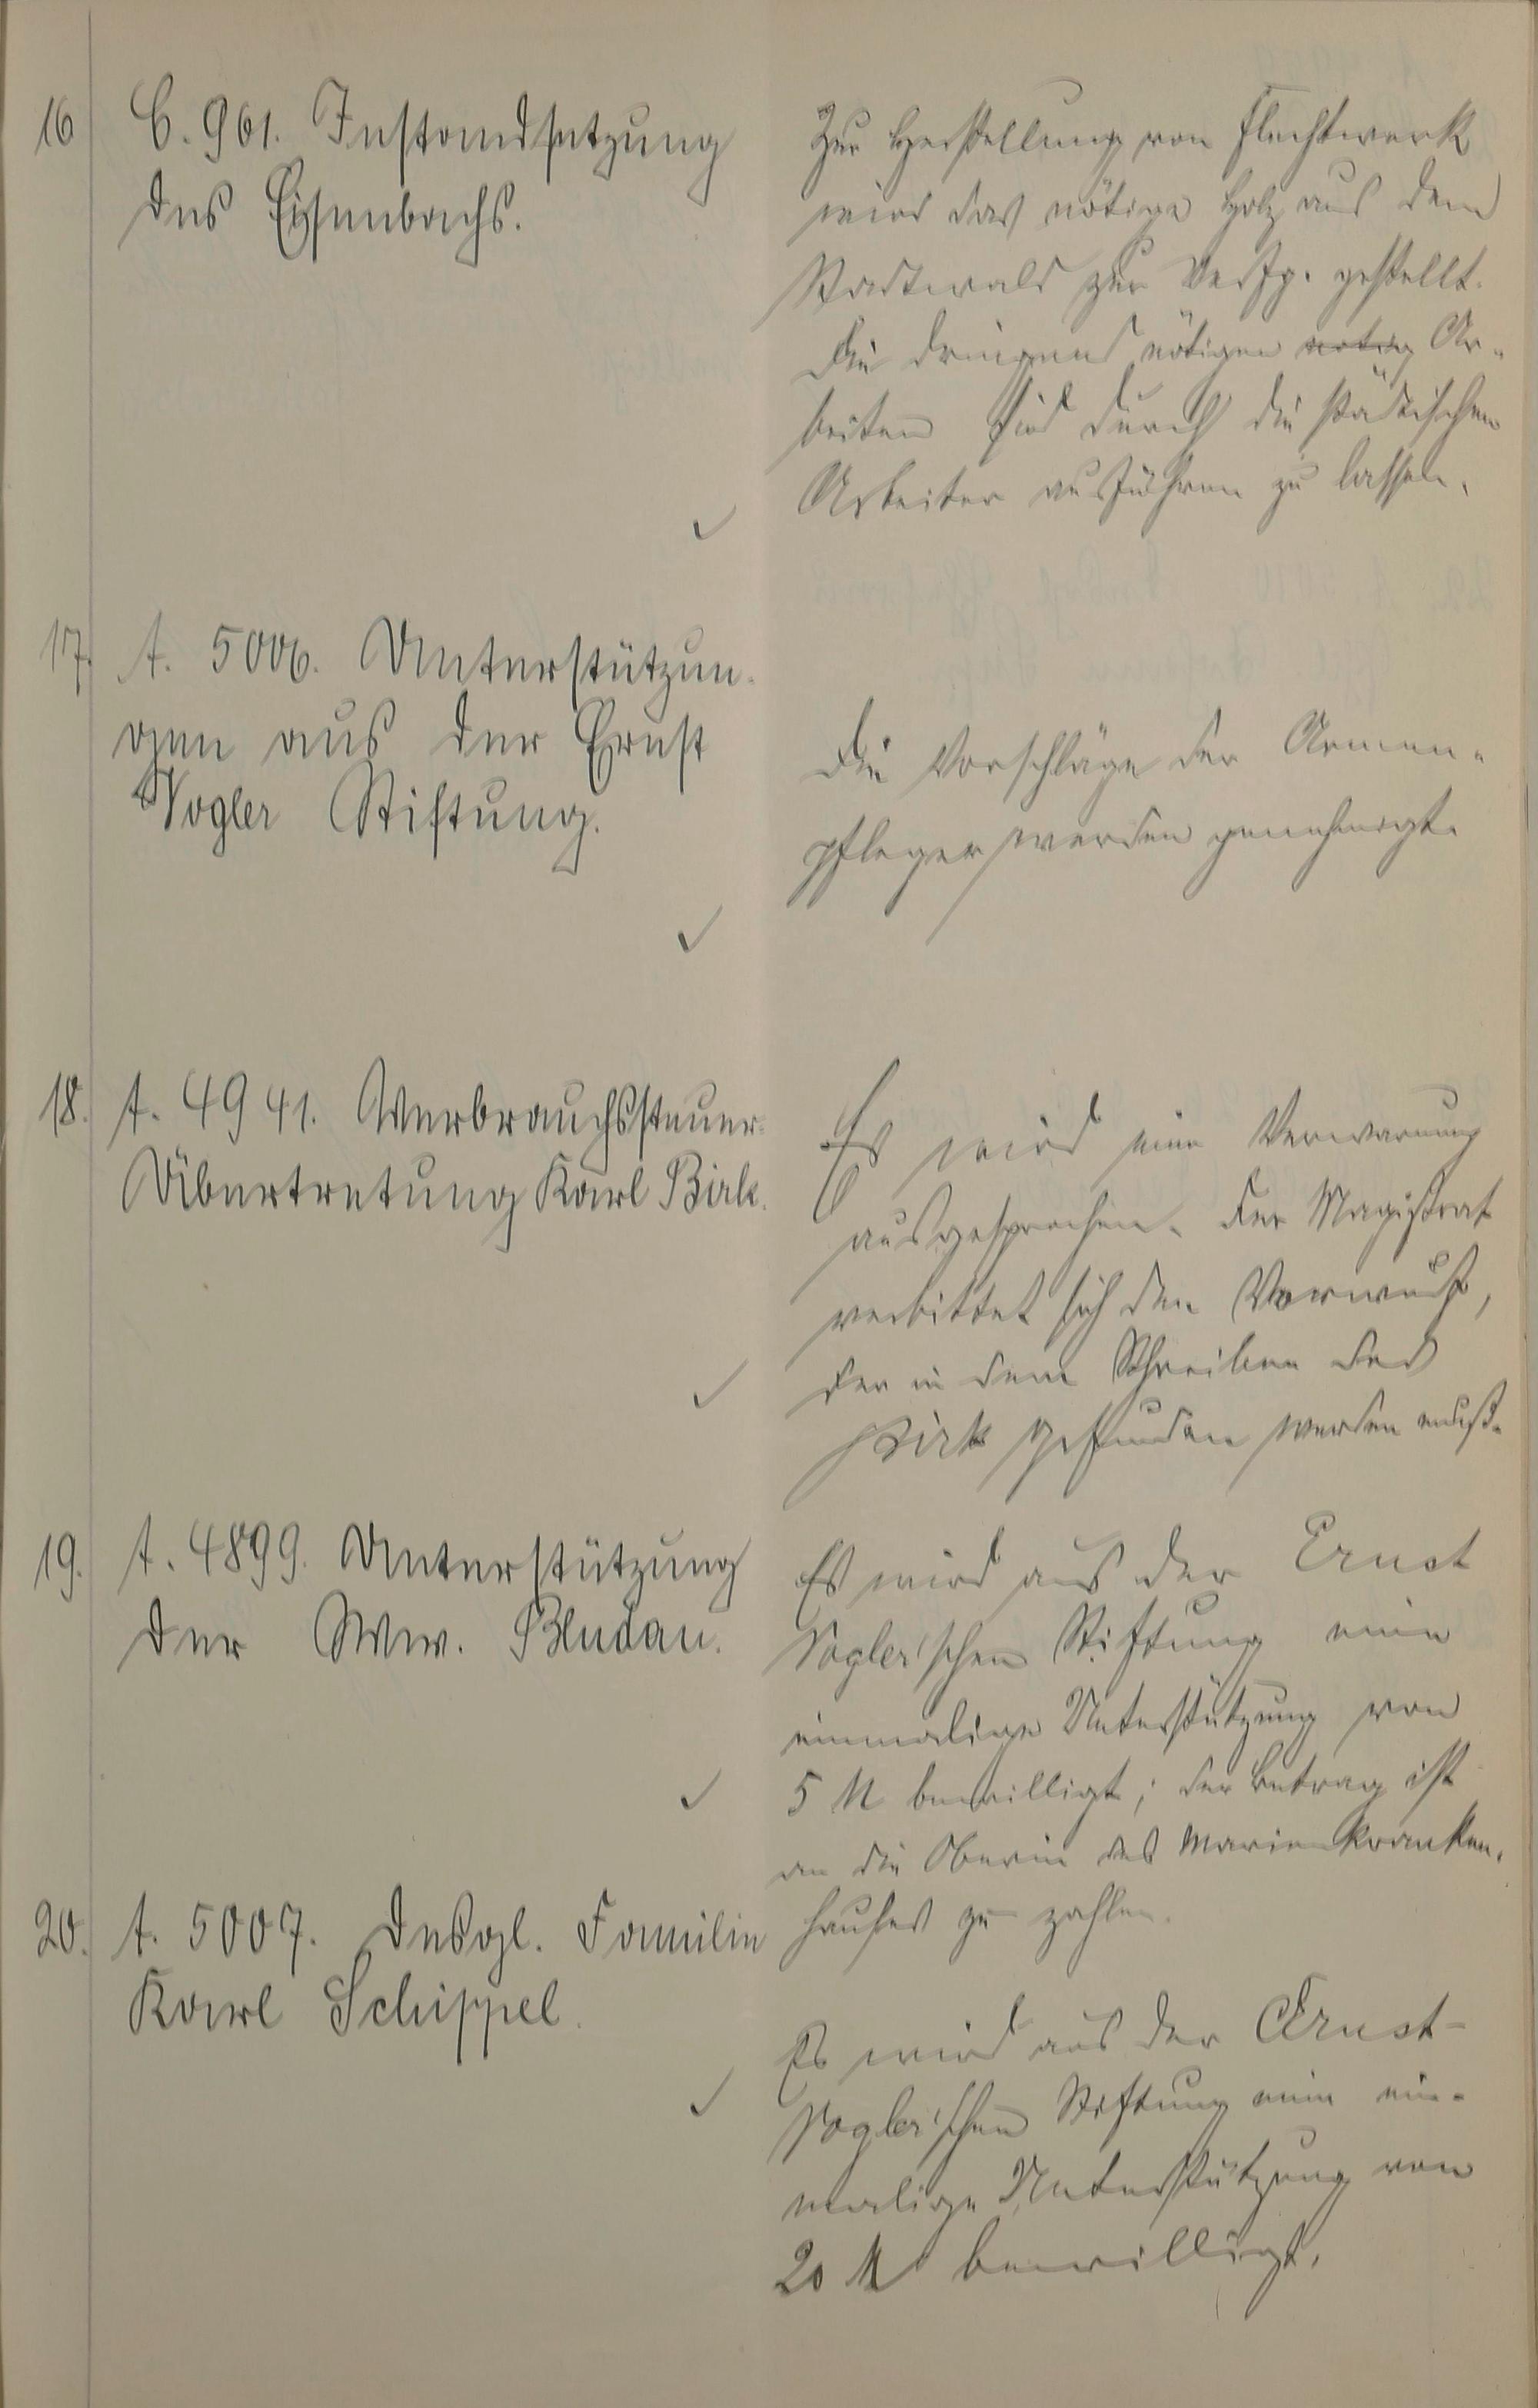 16 C. 961. Instandsetzung
des Eisenbachs.
Zur Herstellung von Flechtwerk
wird das nötige Holz aus dem
Stadtwald zur Verfg. gestellt.
Die dringend nötigen nötig Ar-
beiten sind durch die städtischen
Arbeiter ausführen zu lassen.
17. A. 5006. Unterstützun-
gen aus der Ernst
Vogler Stiftung.
Die Vorschläge der Armen-
pfleger werden genehmigt.
18. A. 4941. Verbrauchssteuer-
Übertretung Karl Birk.
Es wird eine Verwarnung
ausgesprochen. Der Magistrat
verbittet sich den Vorwurf,
der in dem Schreiben des
Birk gefunden werden muß.
19. A. 4899. Unterstützung
der Ww. Bludau.
Es wird aus der Ernst
Vogler'schen Stiftung eine
einmalige Unterstützung von
5 M bewilligt; der Betrag ist
an die Oberin des Marienkranken-
hauses zu zahlen.
20. A. 5007. Desgl. Familie
Karl Schippel.
Es wird aus der Ernst-
Vogler'schen Stiftung eine ein-
malige Unterstützung von
20 M bewilligt.